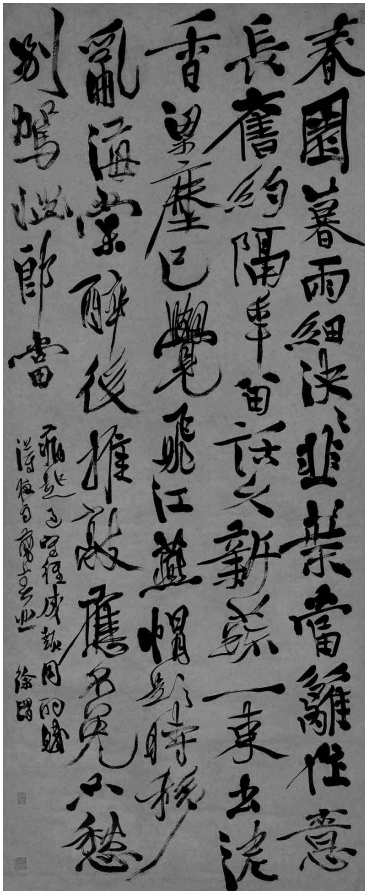 春園暮雨細泱泱韭葉當籬作意
長舊約隔年留話久新蔬一束出泥
香梁塵已覺飛江燕帽影時移
亂海棠醉後推敲應不免只愁
別駕惱郎當
賦
得夜雨剪春韭 徐渭